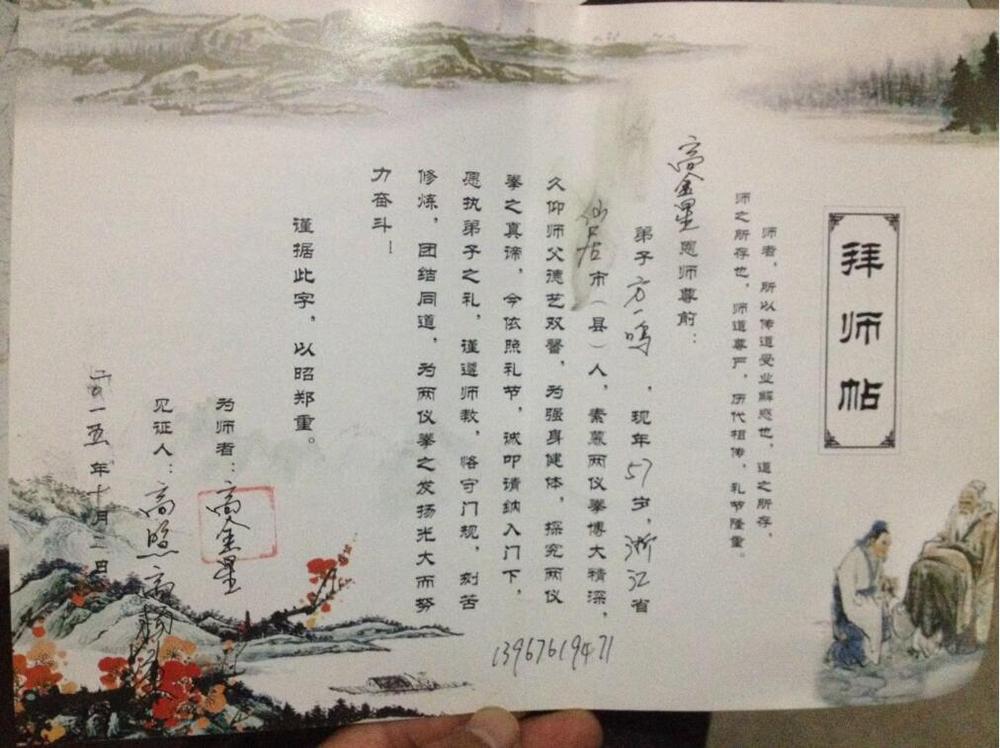 拜师帖
师者，所以传道受业解惑也，道之所存，
师之所存也，师道尊严，历代相传，礼节隆重。
高金星恩师尊前：
弟子方一鸣，现年57岁，浙江省
仙居市（县）人，素慕两仪拳博大精深，
久仰师父德艺双馨，为强身健体，探究两仪
拳之真谛，今依照礼节，诚叩请纳入门下，
愿执弟子之礼，谨遵师教，恪守门规，刻苦
修炼，团结同道，为两仪拳之发扬光大而努
力奋斗！
谨据此字，以昭郑重。
为师者：高金星
见证人：高照 高
二〇一五年十月三日
13967619471